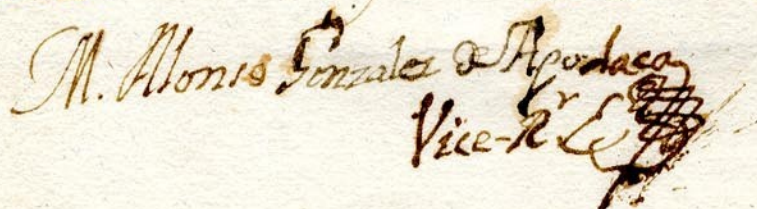 M. Alonso Gonzalez de Apodaca
Vice-Rr